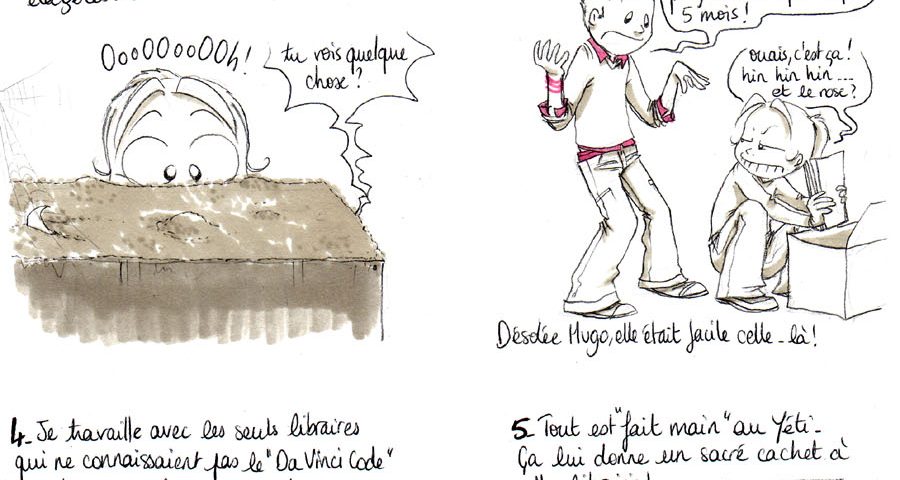 OooOOooOOh!
tu vois quelque
chose?
5 mois!
ouais, c'est ça!
hin hin hin...
et le rose?
Désolée Hugo, elle était facile celle-là!
4- Je travaille avec les seuls libraires
qui ne connaissaient pas le "Da Vinci Code"
5- Tout est "fait main" au Yéti-
Ça lui donne un sacré cachet à